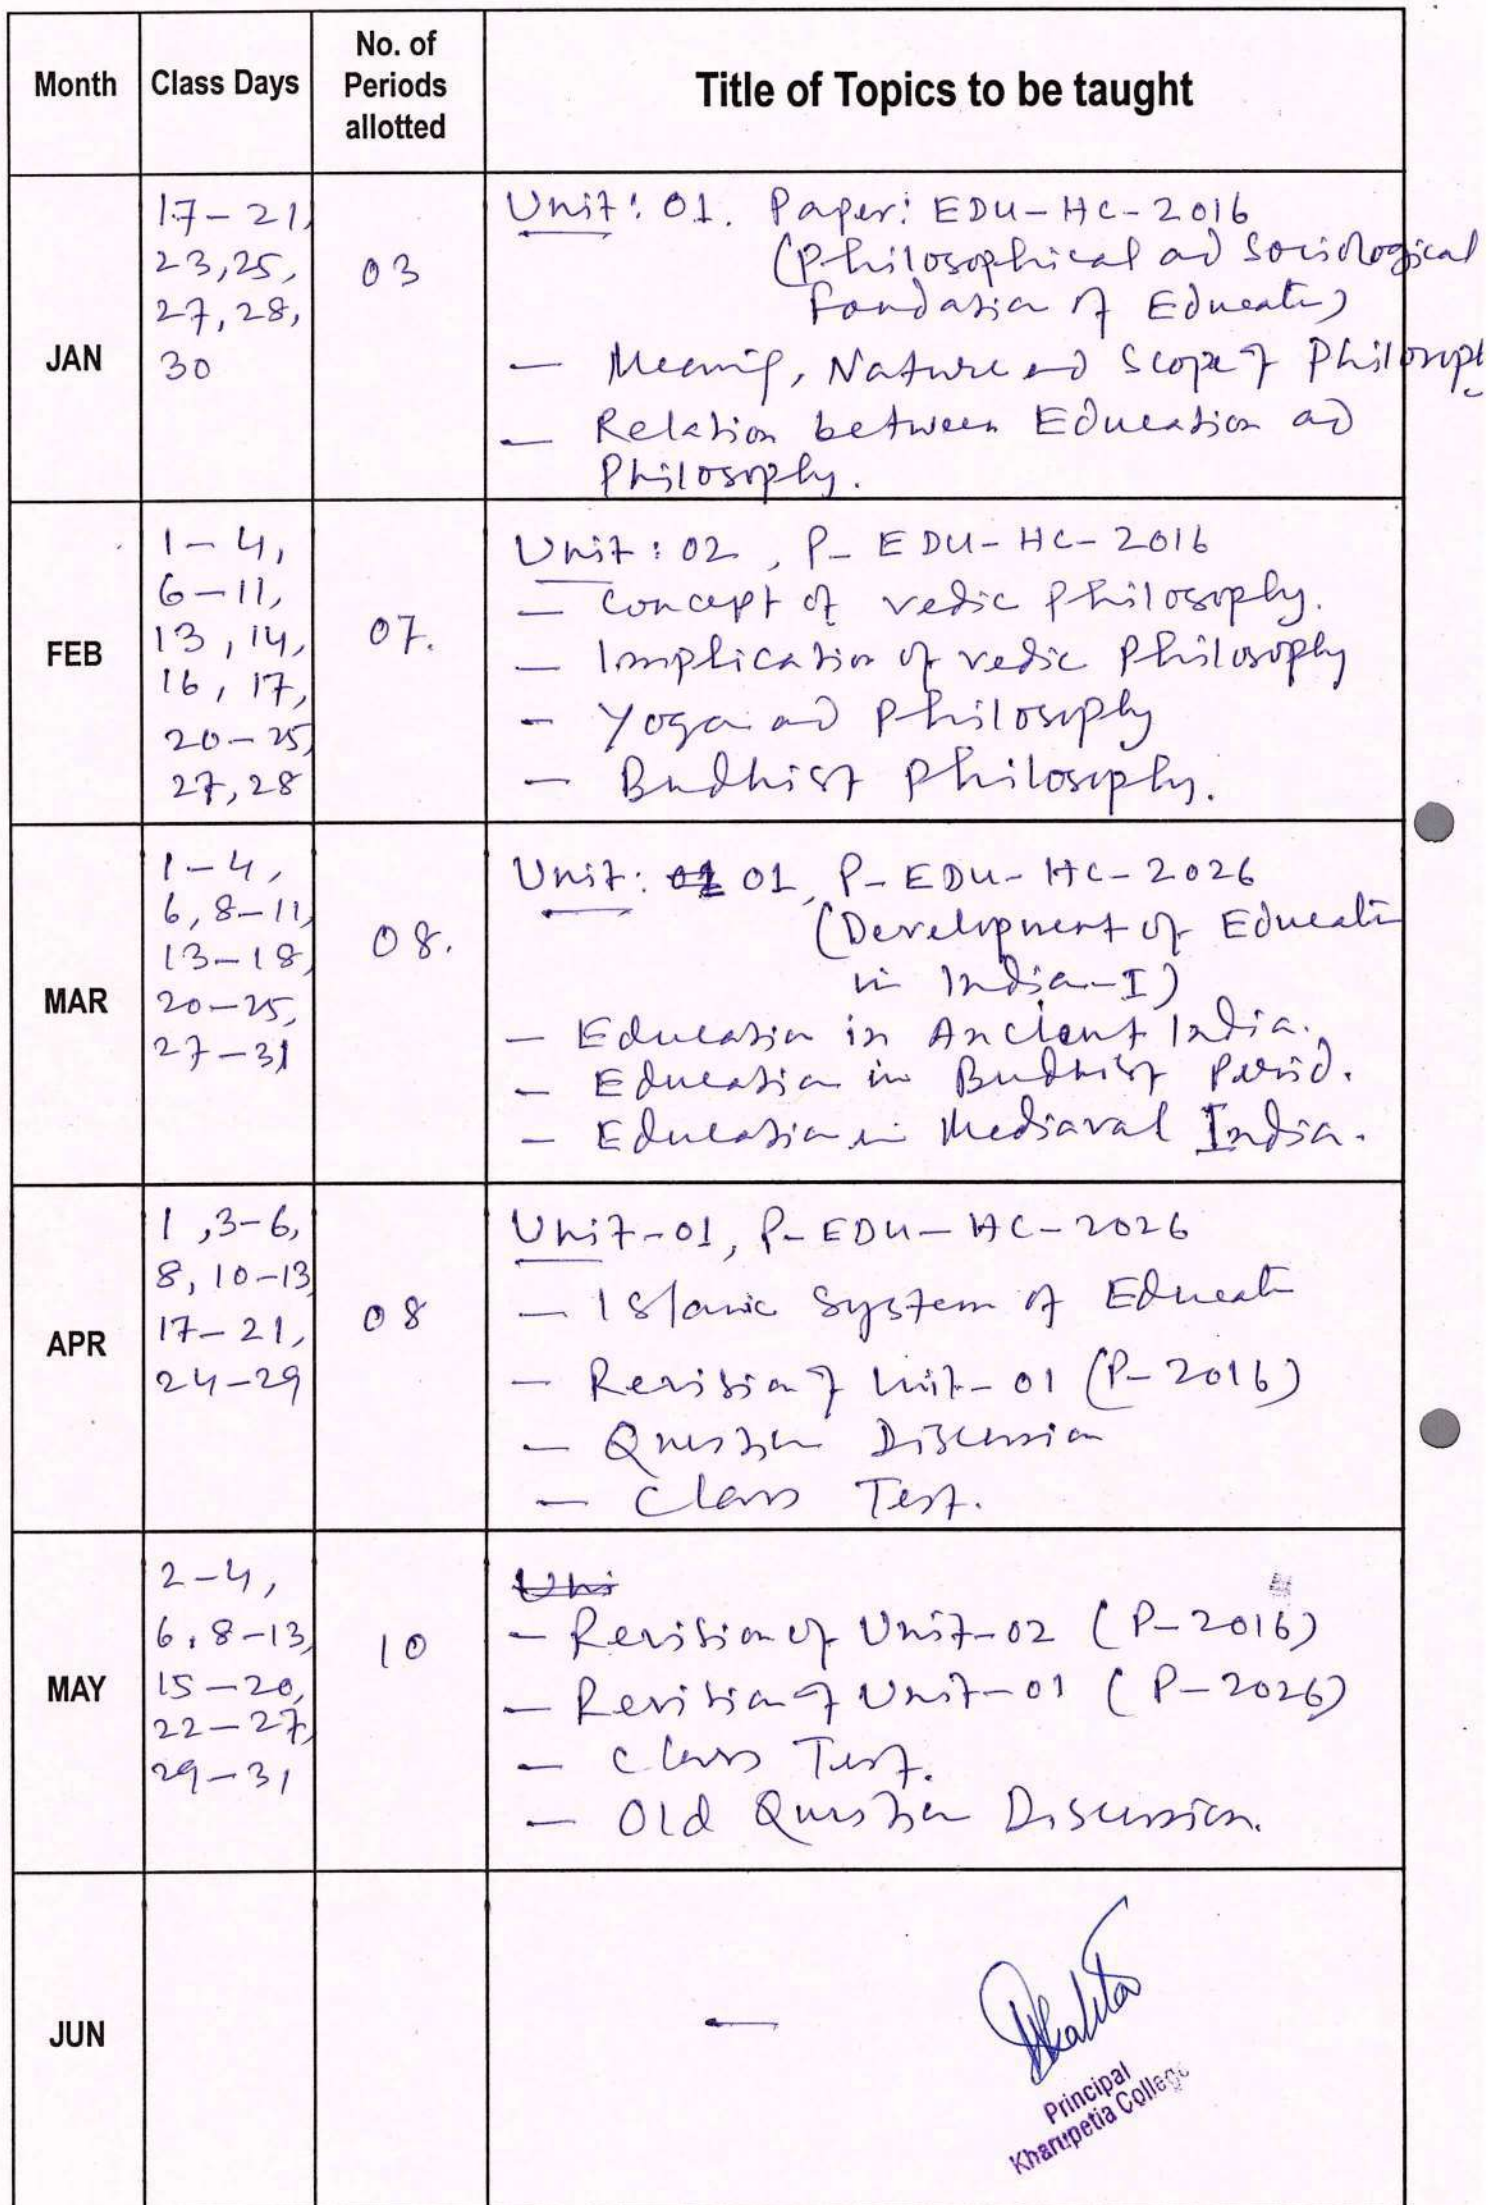 Month Class Days No. of Periods allotted Title of Topics to be taught
JAN
17-21,
23,25,
27,28,
30
03
Unit: 01. Paper: EDU-HC-2016
(Philosophical ad Sociological
Foundation of Education)
- Meaning, Nature and Scope of Philosophy
- Relation between Education ad
Philosophy.
FEB
1-4,
6-11,
13, 14,
16, 17,
20-25,
27, 28
07.
Unit: 02, P- EDU-HC-2016
- Concept of vedic Philosophy.
- Implication of vedic Philosophy
- Yoga ad Philosophy
- Budhist Philosophy.
MAR
1-4,
6, 8-11,
13-18,
20-25,
27-31
08.
Unit: 01, P-EDU-HC-2026
(Development of Education
in India-I)
- Education in Ancient India.
- Education in Budhist Period.
- Education in Mediaval India.
APR
1, 3-6,
8, 10-13
17-21,
24-29
08
Unit-01, P-EDU-HC-2026
- Islamic System of Education
- Revision of Unit-01 (P-2016)
- Question Discussion
- Class Test.
MAY
2-4,
6, 8-13,
15-20,
22-27,
29-31
10
Uni
- Revision of Unit-02 (P-2016)
- Revision of Unit-01 (P-2026)
- Class Test.
- Old Question Discussion.
JUN
-
Principal
Kharupetia College